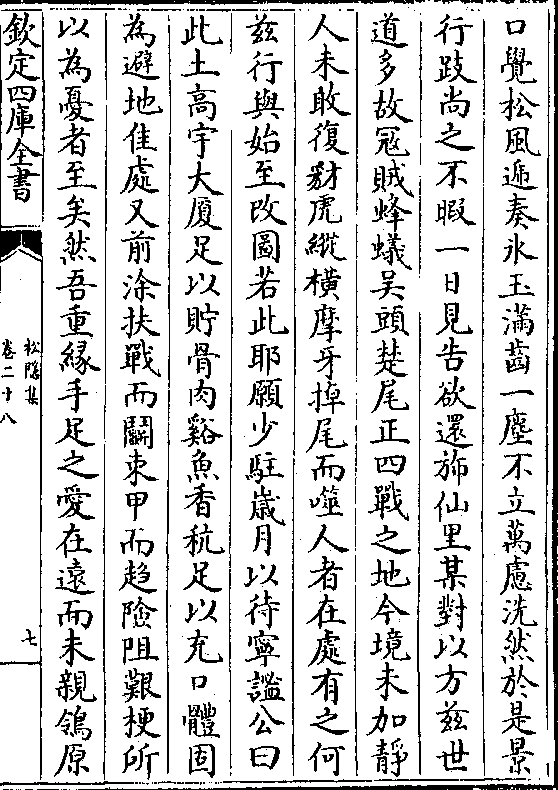 口覺松風遞奏氷玉滿齒一塵不立萬慮洗然於是景
行跂尚之不暇一日見告欲還斾仙里某對以方兹世
道多故冦賊蜂蟻吴頭楚尾正四戰之地今境未加靜
人未敢復豺虎縱橫摩牙掉尾而噬人者在處有之何
兹行與始至改圖若此耶願少駐歲月以待寧謐公曰
此土高宇大厦足以貯骨肉谿魚香秔足以充口體固
為避地佳處又前涂扶戰而鬬束甲而趋險阻艱梗所
以為憂者至矣然吾重緣手足之愛在遠而未親鴒原
欽定四庫全書
松隱集
卷二十八
七